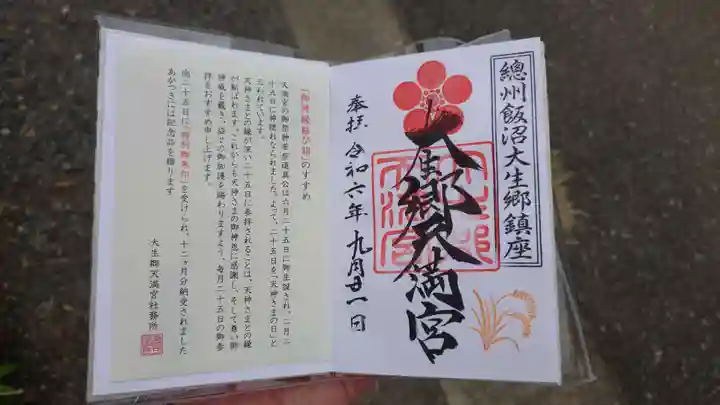 總州飯沼大生郷鎮座
大生郷天満宮
奉拝 令和六年 九月廿一日
「御神縁結び詣」のすすめ
天満宮の御祭神菅原道真公は六月二十五日に御生誕され、二月二
十五日に神隠れなられました。よって、二十五日を「天神さまの日」と
云われています。
天神さまとの縁が深い二十五日に参拝されることは、天神さまとの縁
が結ばれます。これからも天神さまの御神恩に感謝し、そして尊い御
神威を戴き、益々の御加護を賜わりますよう、毎月二十五日の御参
拝をおすすめ申し上げます。
尚二十五日に「特別御朱印」を受けられ、十二ヶ月分納受されました
あかつきには記念品を贈ります
大生郷天満宮社務所